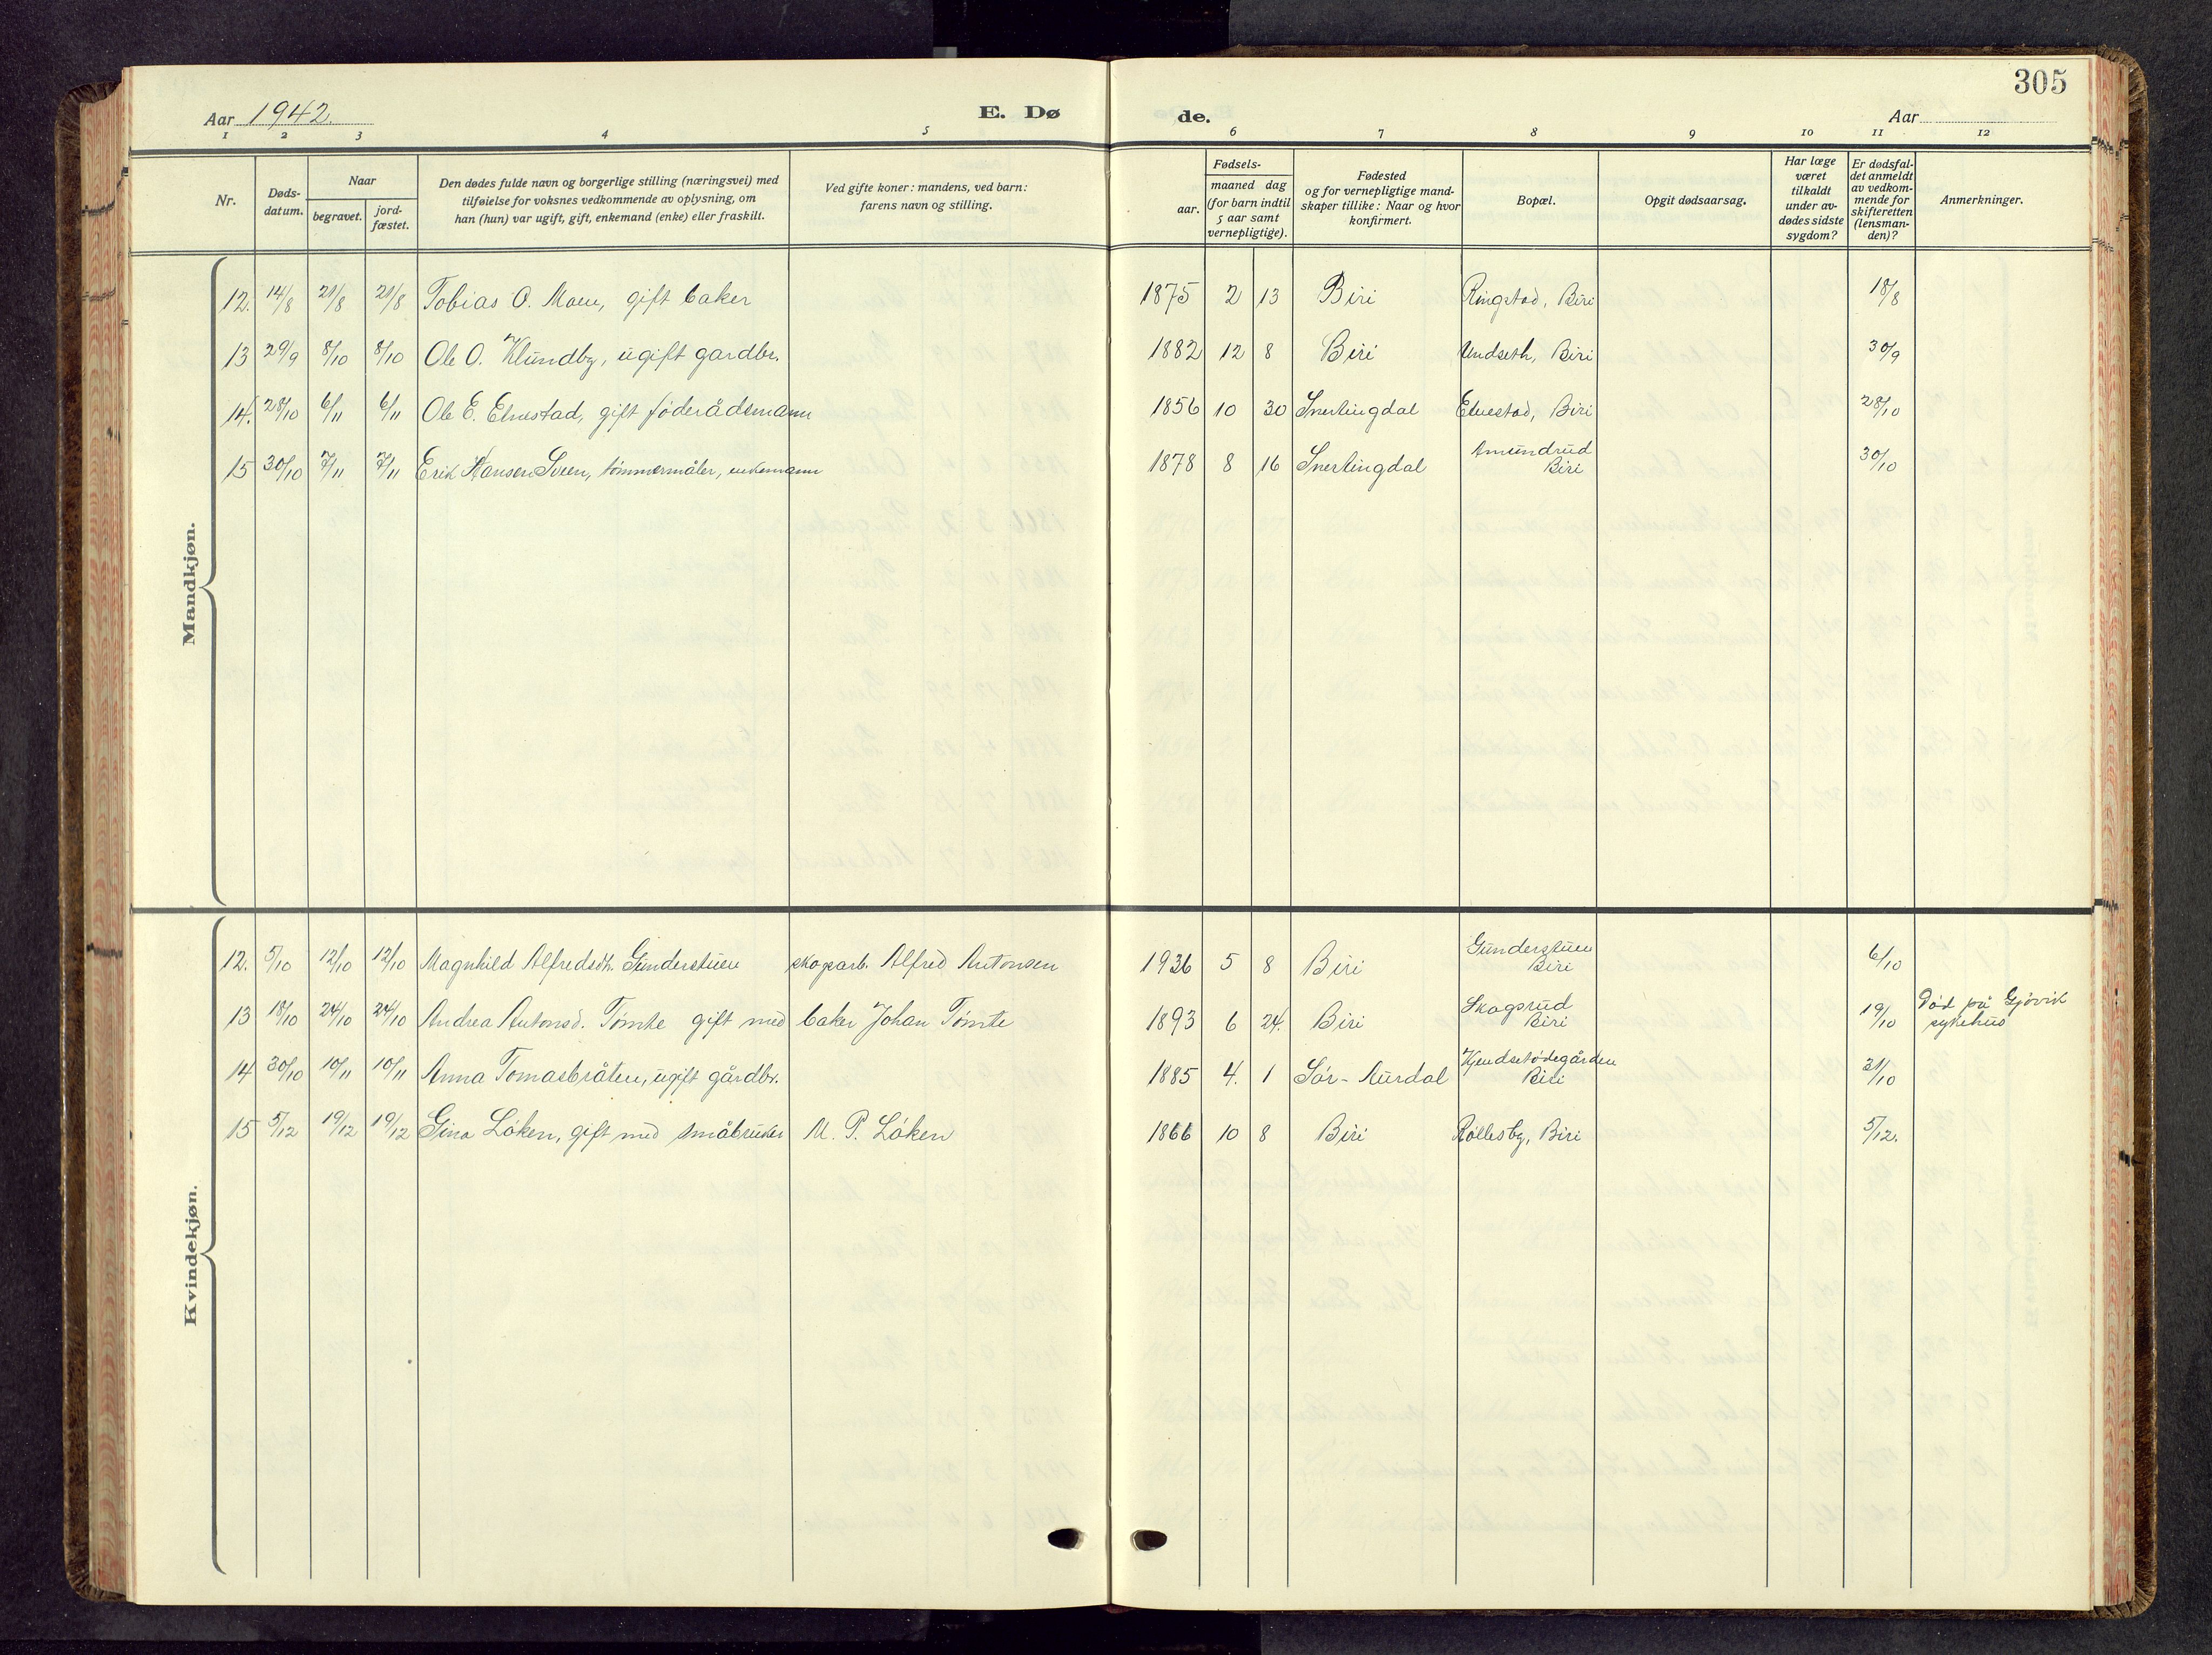 305
Aar 1942. E. Døde. Aar
1 2 3 4 5 6 7 8 9 10 11 12
Nr.
Døds-
datum.
Naar
begravet.
jord-
fæstet.
Den dødes fulde navn og borgerlige stilling (næringsvei) med
tilføielse for voksnes vedkommende av oplysning, om
han (hun) var ugift, gift, enkemand (enke) eller fraskilt.
Ved gifte koner: mandens, ved barn:
farens navn og stilling.
Fødsels-
aar.
maaned dag
(for barn indtil
5 aar samt
vernepligtige).
Fødested
og for vernepligtige mand-
skaper tillike: Naar og hvor
konfirmert.
Bopæl.
Opgit dødsaarsag.
Har læge
været
tilkaldt
under av-
dødes sidste
sygdom?
Er dødsfal-
det anmeldt
av vedkom-
mende for
skifteretten
(lensman-
den)?
Anmerkninger.
Mandkjøn.
12. 14/8 21/8 21/8 Tobias O. Moen, gift baker 1875 2 13 Biri Ringstad, Biri 18/8
13 29/9 8/10 8/10 Ole O. Klundby, ugift gardbr. 1882 12 8 Biri Undseth, Biri 30/9
14. 28/10 6/11 6/11 Ole E. Elvestad, gift föderådsmann 1856 10 30 Snertingdal Elvestad, Biri 28/10
15 30/10 7/11 7/11 Erik Hansen Sveen, tömmermåler, enkemann 1878 8 16 Snertingdal Amundrud
Biri 30/10
Kvindekjøn.
12. 5/10 12/10 12/10 Magnhild Alfredsdtr. Gunderstuen skogsarb. Alfred Antonsen 1936 5 8 Biri Gunderstuen
Biri 6/10
13 18/10 24/10 24/10 Andrea Antonsd. Tömte gift med baker Johan Tömte 1893 6 24. Biri Skogsrud
Biri 19/10 Död på Gjövik
sykehus
14 30/10 10/11 10/11 Anna Tomasbråten, ugift gårdbr. 1885 4. 1 Sör-Aurdal Kjendsetödegården
Biri 31/10
15 5/12 19/12 19/12 Gina Löken, gift med småbruker M. P. Löken 1866 10 8 Biri Röllesby, Biri 5/12.